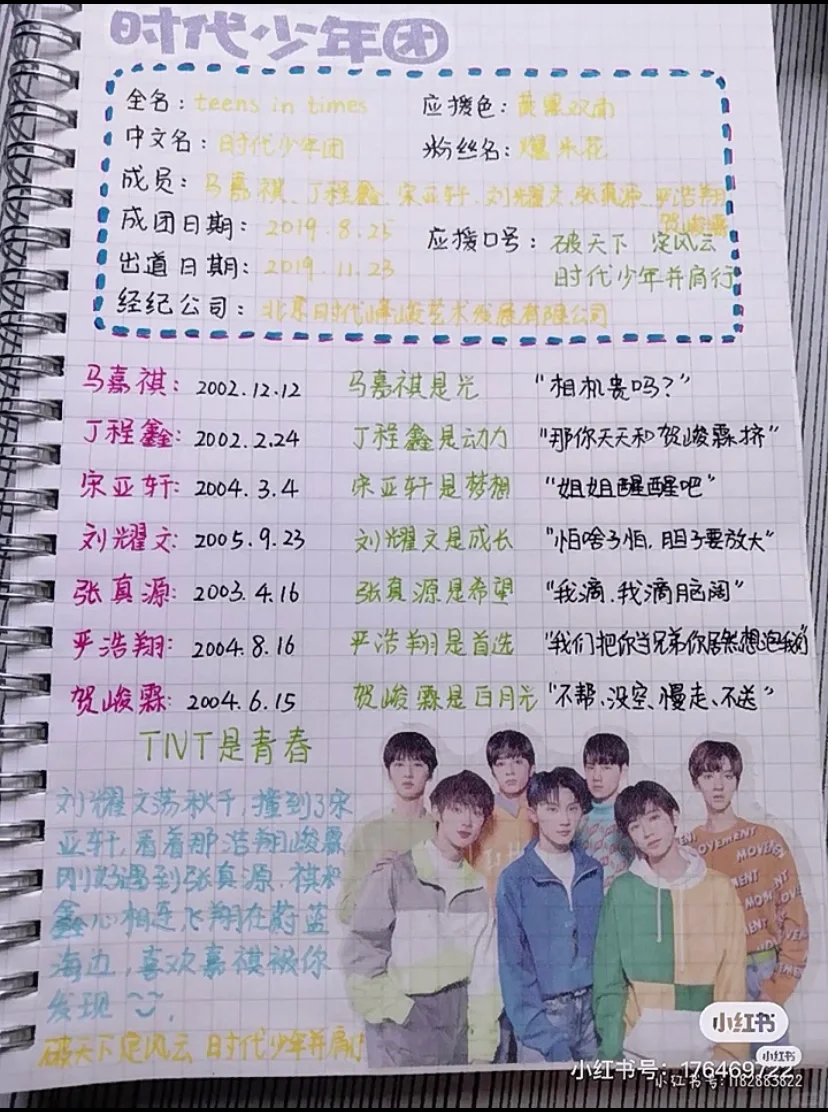 时代少年团
全名：teens in times 应援色：黄黑双闪
中文名：时代少年团 粉丝名：爆米花
成员：马嘉祺、丁程鑫、宋亚轩、刘耀文、张真源、严浩翔
贺峻霖
成团日期：2019.8.25
应援口号：破天下 定风云
出道日期：2019.11.23 时代少年并肩行
经纪公司：北京时代峰峻艺术发展有限公司
马嘉祺：2002.12.12 马嘉祺是光 “相机贵吗？”
丁程鑫：2002.2.24 丁程鑫是动力 “那你天天和贺峻霖挤”
宋亚轩：2004.3.4 宋亚轩是梦想 “姐姐醒醒吧”
刘耀文：2005.9.23 刘耀文是成长 “怕啥子怕，胆子要放大”
张真源：2003.4.16 张真源是希望 “我滴、我滴脑阔”
严浩翔：2004.8.16 严浩翔是首选 “我们把你当兄弟你居然想泡我们”
贺峻霖：2004.6.15 贺峻霖是白月光 “不帮、没空、慢走、不送”
TNT是青春
刘耀文荡秋千，撞到了宋
亚轩，看着那浩翔峻霖
刚好遇到张真源，祺和
鑫心相连飞翔在蔚蓝
海边，喜欢嘉祺被你
发现
破天下定风云 时代少年并肩行
MOVEMENT
小红书
小红书
小红书号：176469722
小红书号：1182883822